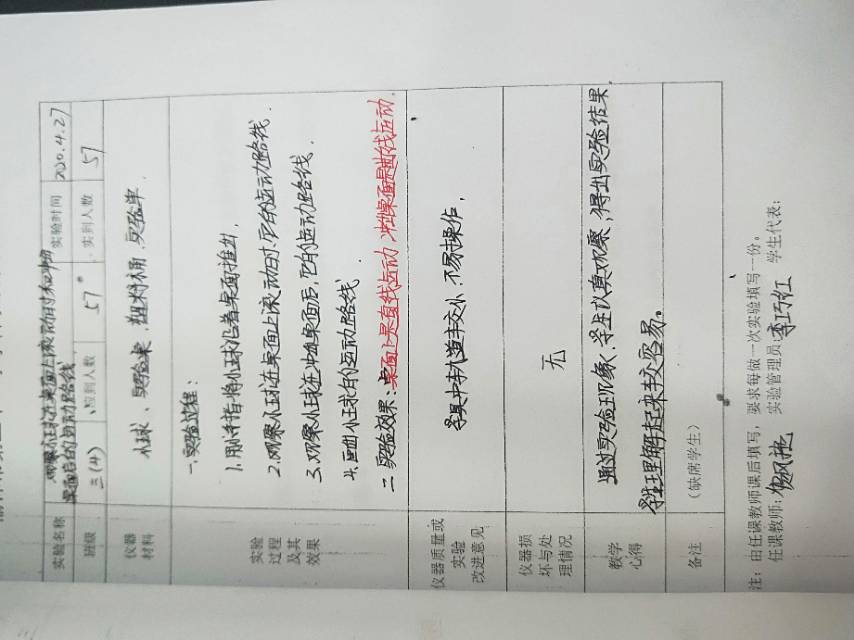 实验名称 观察小球在桌面上滚动时和冲出桌面后的运动路线 实验时间 2020.4.27
班级 三(4) 应到人数 57 实到人数 57
仪器材料 小球、实验桌、塑料桶、实验单
实验过程及其效果
一.实验过程:
1.用手指将小球沿着桌面推出.
2.观察小球在桌面上滚动时,它的运动路线.
3.观察小球在冲出桌面后,它的运动路线.
4.画出小球的运动路线.
二 实验效果:桌面上是直线运动 冲出桌面是曲线运动.
仪器质量或实验改进意见 学具中轨道较小,不易操作,
仪器损坏与处理情况 无
教学心得 通过实验现象,学生认真观察,得出实验结果,
学生理解起来较容易。
备注 (缺席学生)
注:由任课教师课后填写,要求每做一次实验填写一份。
任课教师: 实验管理员:李巧红 学生代表: